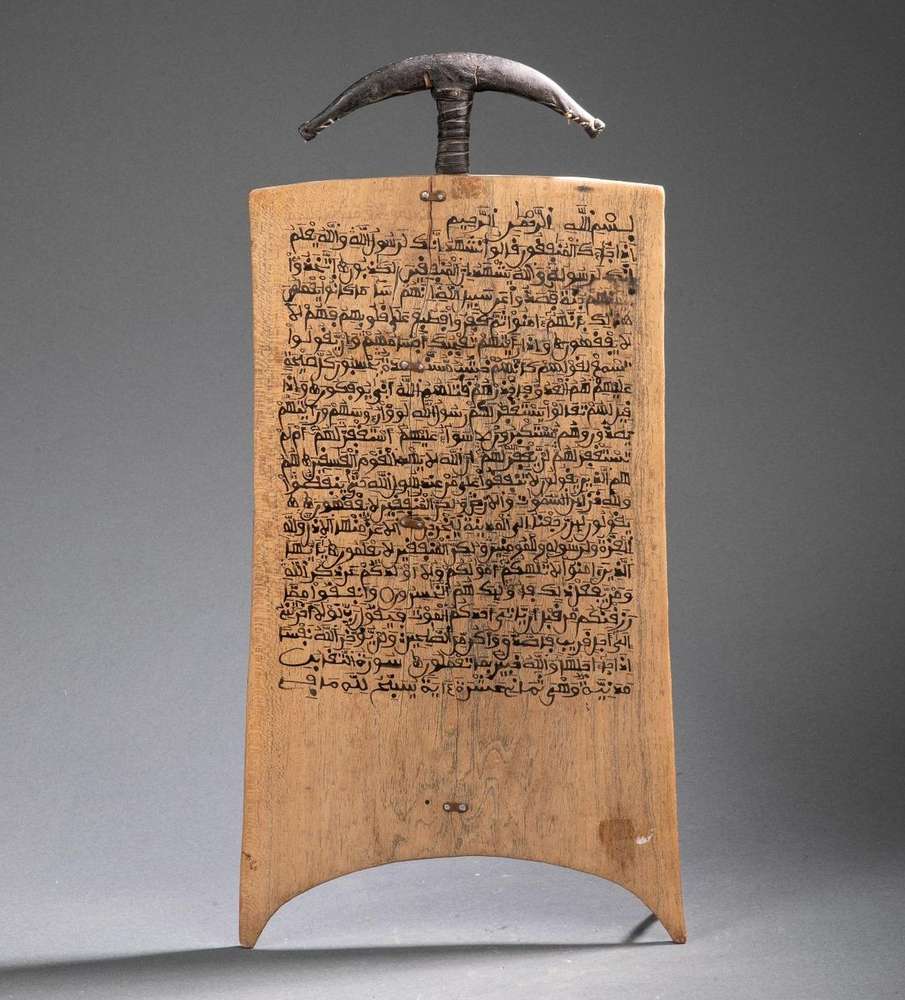 بسم الله الرحمن الرحيم
إذا جاءك المنفقون قالوا نشهد إنك لرسول الله والله يعلم
إنك لرسوله والله يشهد إن المنفقين لكذبون اتخذوا
أيمنهم جنة فصدوا عن سبيل الله إنهم ساء ما كانوا يعملون
ذلك بأنهم ءامنوا ثم كفروا فطبع على قلوبهم فهم لا
يفقهون وإذا رأيتهم تعجبك أجسامهم وإن يقولوا
تسمع لقولهم كأنهم خشب مسندة يحسبون كل صيحة
عليهم هم العدو فاحذرهم قتلهم الله أنى يوفكون وإذا
قيل لهم تعالوا يستغفر لكم رسول الله لووا رءوسهم ورأيتهم
يصدون وهم مستكبرون سواء عليهم أستغفرت لهم أم لم
تستغفر لهم لن يغفر الله لهم إن الله لا يهدي القوم الفسقين هم
هم الذين يقولون لا تنفقوا على من عند رسول الله حتى ينفضوا
ولله خزائن السموت والارض ولكن المنفقين لا يفقهون
يقولون لئن رجعنا إلى المدينة ليخرجن الاعز منها الاذل ولله
العزة ولرسوله وللمومنين ولكن المنفقين لا يعلمون يأيها
الذين ءامنوا لا تلهكم أمولكم ولا أولدكم عن ذكر الله
ومن يفعل ذلك فأولئك هم الخسرون وأنفقوا مما
رزقنكم من قبل أن ياتي أحدكم الموت فيقول رب لولا أخرتني
إلى أجل قريب فأصدق وأكن من الصلحين ولن يوخر الله نفسا
إذا جاء أجلها والله خبير بما تعملون سورة التغابن
مدنية وهي ثماني عشرة ءاية يسبح لله ما في